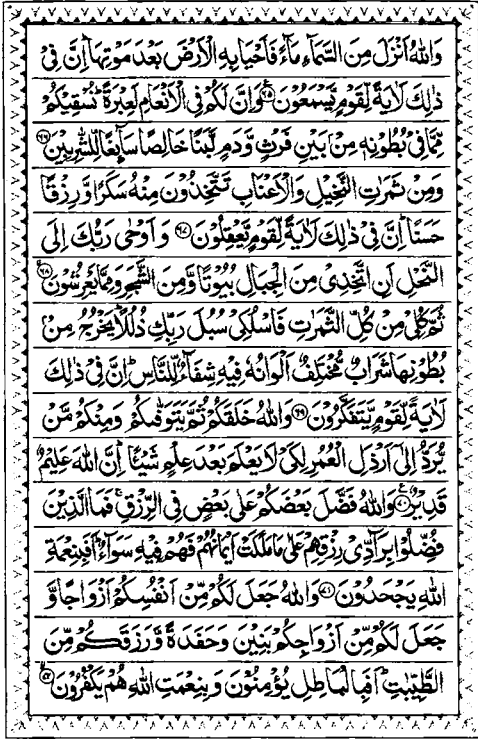 وَاللّٰهُ اَنْزَلَ مِنَ السَّمَآءِ مَآءً فَاَحْيَا بِهِ الْاَرْضَ بَعْدَ مَوْتِهَا ؕ اِنَّ فِىْ
ذٰلِكَ لَاٰيَةً لِّقَوْمٍ يَّسْمَعُوْنَ ﴿۶۵﴾ وَاِنَّ لَكُمْ فِى الْاَنْعَامِ لَعِبْرَةً ؕ نُسْقِيْكُمْ
مِّمَّا فِىْ بُطُوْنِهٖ مِنْۢ بَيْنِ فَرْثٍ وَّدَمٍ لَّبَنًا خَالِصًا سَآئِغًا لِّلشّٰرِبِيْنَ ﴿۶۶﴾
وَمِنْ ثَمَرٰتِ النَّخِيْلِ وَالْاَعْنَابِ تَتَّخِذُوْنَ مِنْهُ سَكَرًا وَّرِزْقًا
حَسَنًا ؕ اِنَّ فِىْ ذٰلِكَ لَاٰيَةً لِّقَوْمٍ يَّعْقِلُوْنَ ﴿۶۷﴾ وَاَوْحٰى رَبُّكَ اِلَى
النَّحْلِ اَنِ اتَّخِذِىْ مِنَ الْجِبَالِ بُيُوْتًا وَّمِنَ الشَّجَرِ وَمِمَّا يَعْرِشُوْنَ ﴿۶۸﴾
ثُمَّ كُلِىْ مِنْ كُلِّ الثَّمَرٰتِ فَاسْلُكِىْ سُبُلَ رَبِّكِ ذُلُلًا ؕ يَخْرُجُ مِنْۢ
بُطُوْنِهَا شَرَابٌ مُّخْتَلِفٌ اَلْوَانُهٗ فِيْهِ شِفَآءٌ لِّلنَّاسِ ؕ اِنَّ فِىْ ذٰلِكَ
لَاٰيَةً لِّقَوْمٍ يَّتَفَكَّرُوْنَ ﴿۶۹﴾ وَاللّٰهُ خَلَقَكُمْ ثُمَّ يَتَوَفّٰىكُمْ وَمِنْكُمْ مَّنْ
يُّرَدُّ اِلٰٓى اَرْذَلِ الْعُمُرِ لِكَىْ لَا يَعْلَمَ بَعْدَ عِلْمٍ شَيْئًا ؕ اِنَّ اللّٰهَ عَلِيْمٌ
قَدِيْرٌ ﴿۷۰﴾ وَاللّٰهُ فَضَّلَ بَعْضَكُمْ عَلٰى بَعْضٍ فِى الرِّزْقِ ۚ فَمَا الَّذِيْنَ
فُضِّلُوْا بِرَآدِّىْ رِزْقِهِمْ عَلٰى مَا مَلَكَتْ اَيْمَانُهُمْ فَهُمْ فِيْهِ سَوَآءٌ ؕ اَفَبِنِعْمَةِ
اللّٰهِ يَجْحَدُوْنَ ﴿۷۱﴾ وَاللّٰهُ جَعَلَ لَكُمْ مِّنْ اَنْفُسِكُمْ اَزْوَاجًا وَّ
جَعَلَ لَكُمْ مِّنْ اَزْوَاجِكُمْ بَنِيْنَ وَحَفَدَةً وَّرَزَقَكُمْ مِّنَ
الطَّيِّبٰتِ ؕ اَفَبِالْبَاطِلِ يُؤْمِنُوْنَ وَبِنِعْمَتِ اللّٰهِ هُمْ يَكْفُرُوْنَ ﴿۷۲﴾